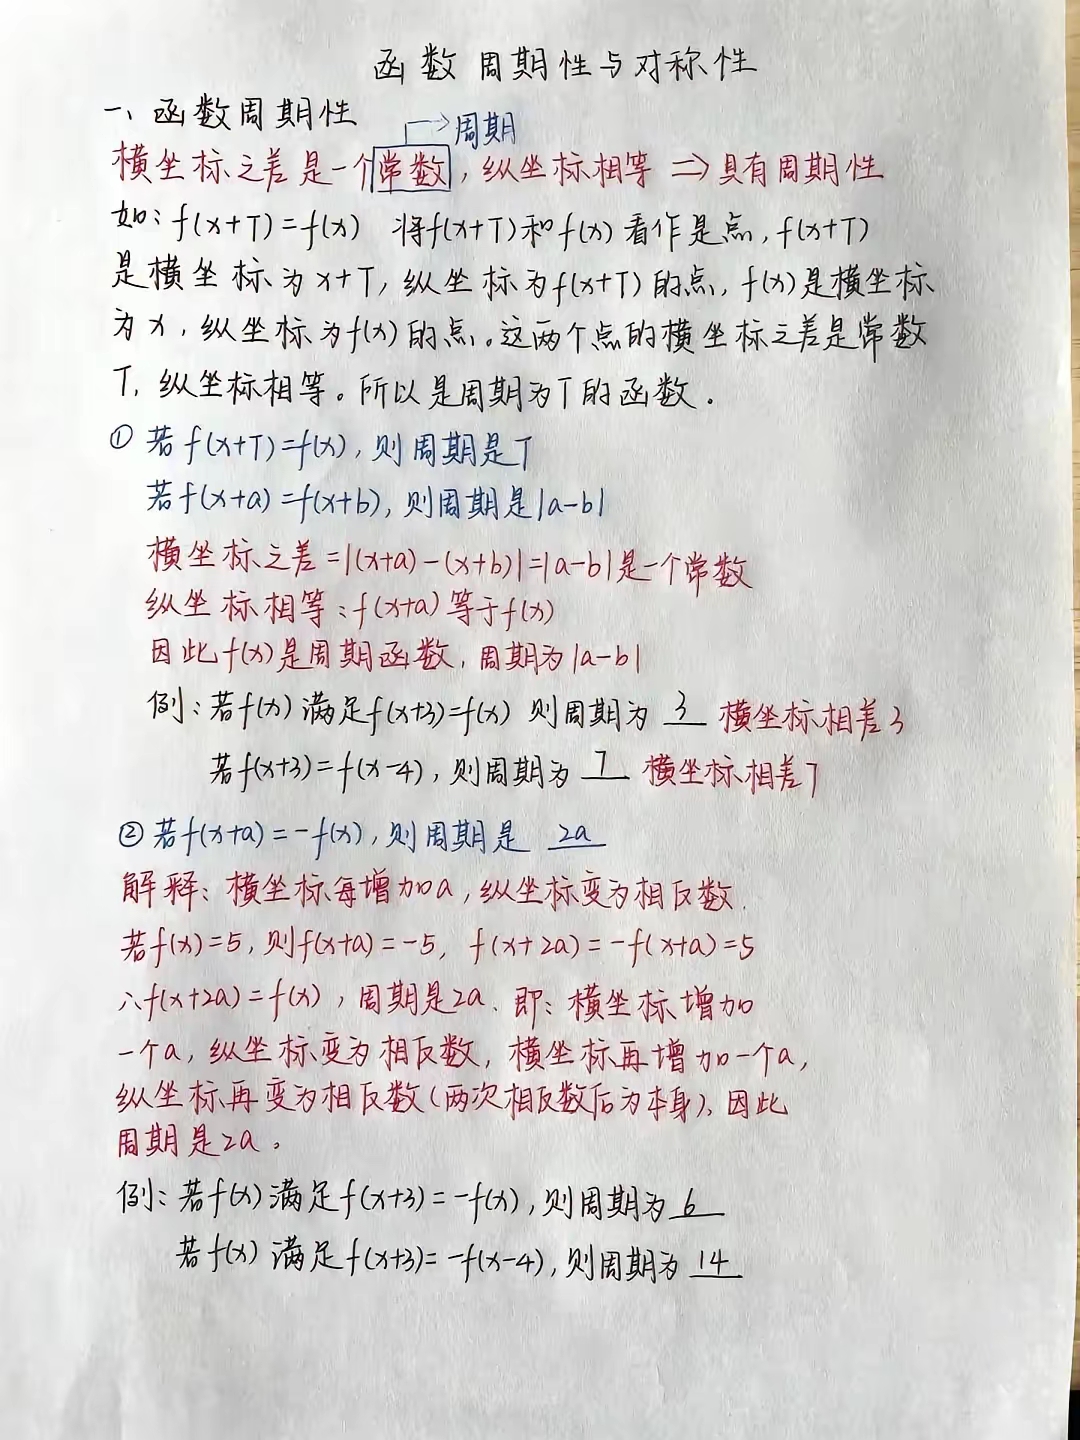 函数周期性与对称性
一、函数周期性
周期
横坐标之差是一个常数，纵坐标相等 ⇒具有周期性
如：f(x+T)=f(x) 将f(x+T)和f(x)看作是点，f(x+T)
是横坐标为x+T，纵坐标为f(x+T)的点，f(x)是横坐标
为x，纵坐标为f(x)的点。这两个点的横坐标之差是常数
T，纵坐标相等。所以是周期为T的函数．
① 若f(x+T)=f(x)，则周期是T
若f(x+a)=f(x+b)，则周期是|a-b|
横坐标之差=|(x+a)-(x+b)|=|a-b|是一个常数
纵坐标相等：f(x+a)等于f(x)
因此f(x)是周期函数，周期为|a-b|
例：若f(x)满足f(x+3)=f(x) 则周期为 3 横坐标相差3
若f(x+3)=f(x-4)，则周期为 7 横坐标相差7
② 若f(x+a)=-f(x)，则周期是 2a
解释：横坐标每增加a，纵坐标变为相反数．
若f(x)=5，则f(x+a)=-5，f(x+2a)=-f(x+a)=5
∴f(x+2a)=f(x)，周期是2a．即：横坐标增加
一个a，纵坐标变为相反数，横坐标再增加一个a，
纵坐标再变为相反数(两次相反数后为本身)，因此
周期是2a。
例：若f(x)满足f(x+3)=-f(x)，则周期为 6
若f(x)满足f(x+3)=-f(x-4)，则周期为 14